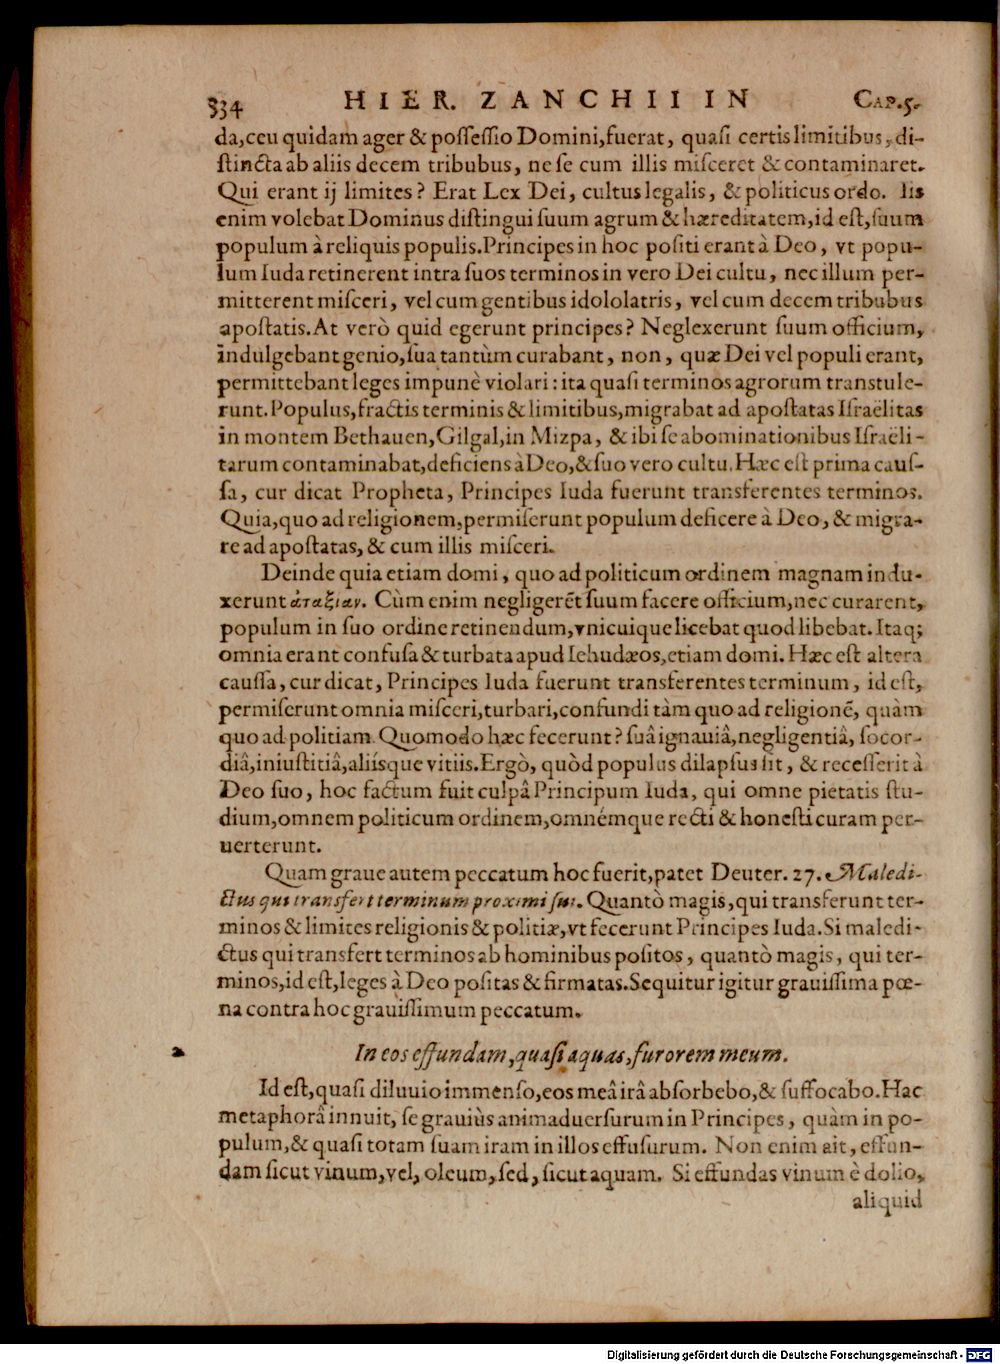 334 HIER. ZANCHII IN CAP. 5.
da, ceu quidam ager & poſſeſſio Domini, fuerat, quaſi certis limitibus, di-
ſtincta ab aliis decem tribubus, ne ſe cum illis miſceret & contaminaret.
Qui erant ij limites? Erat Lex Dei, cultus legalis, & politicus ordo. Iis
enim volebat Dominus diſtingui ſuum agrum & hæreditatem, id eſt, ſuum
populum à reliquis populis. Principes in hoc poſiti erant à Deo, vt popu-
lum Iuda retinerent intra ſuos terminos in vero Dei cultu, nec illum per-
mitterent miſceri, vel cum gentibus idololatris, vel cum decem tribubus
apoſtatis. At verò quid egerunt principes? Neglexerunt ſuum officium,
indulgebant genio, ſua tantùm curabant, non, quæ Dei vel populi erant,
permittebant leges impunè violari: ita quaſi terminos agrorum transtule-
runt. Populus, fractis terminis & limitibus, migrabat ad apoſtatas Iſraëlitas
in montem Bethauen, Gilgal, in Mizpa, & ibi ſe abominationibus Iſraëli-
tarum contaminabat, deficiens à Deo, & ſuo vero cultu. Hæc eſt prima cauſ-
ſa, cur dicat Propheta, Principes Iuda fuerunt transferentes terminos.
Quia, quo ad religionem, permiſerunt populum deficere à Deo, & migra-
re ad apoſtatas, & cum illis miſceri.
Deinde quia etiam domi, quo ad politicum ordinem magnam indu-
xerunt ἀταξίαν. Cùm enim negligerẽt ſuum facere officium, nec curarent,
populum in ſuo ordine retinendum, vnicuique licebat quod libebat. Itaq;
omnia erant confuſa & turbata apud Iehudæos, etiam domi. Hæc eſt altera
cauſſa, cur dicat, Principes Iuda fuerunt transferentes terminum, id eſt,
permiſerunt omnia miſceri, turbari, confundi tàm quo ad religionẽ, quàm
quo ad politiam. Quomodo hæc fecerunt? ſuâ ignauiâ, negligentiâ, ſocor-
diâ, iniuſtitiâ, aliíſque vitiis. Ergò, quòd populus dilapſus ſit, & receſſerit à
Deo ſuo, hoc factum fuit culpâ Principum Iuda, qui omne pietatis ſtu-
dium, omnem politicum ordinem, omnémque recti & honeſti curam per-
uerterunt.
Quam graue autem peccatum hoc fuerit, patet Deuter. 27. Maledi-
ctus qui transfert terminum proximi ſui. Quantò magis, qui transferunt ter-
minos & limites religionis & politiæ, vt fecerunt Principes Iuda. Si maledi-
ctus qui transfert terminos ab hominibus poſitos, quantò magis, qui ter-
minos, id eſt, leges à Deo poſitas & firmatas. Sequitur igitur grauiſſima pœ-
na contra hoc grauiſſimum peccatum.
2 In eos effundam, quaſi aquas, furorem meum.
Id eſt, quaſi diluuio immenſo, eos meâ irâ abſorbebo, & ſuffocabo. Hac
metaphorâ innuit, ſe grauiùs animaduerſurum in Principes, quàm in po-
pulum, & quaſi totam ſuam iram in illos effuſurum. Non enim ait, effun-
dam ſicut vinum, vel, oleum, ſed, ſicut aquam. Si effundas vinum è dolio,
aliquid
Digitalisierung gefördert durch die Deutsche Forschungsgemeinschaft - DFG